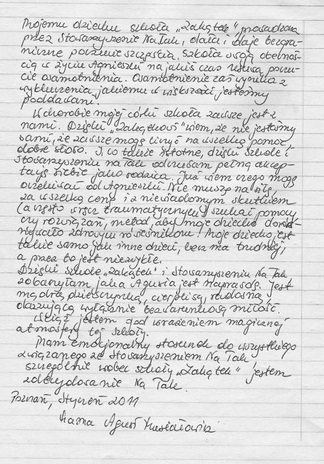 Mojemu dziecku szkoła „Zakątek" prowadzona
przez Stowarzyszenie Na Tak, dała i daje bezgra-
niczne poczucie szczęścia. Szkoła swoją obecnoś-
cią w życiu Agnieszki na jakiś czas
cie osamotnienia. Osamotnienie zaś wynika z
wykluczenia jakiemu w większości jesteśmy
poddawani.
W chorobie mojej córki szkoła zawsze jest z
nami. Dzięki „Zakątkowi" wiem, że nie jesteśmy
sami, że zawsze mogę liczyć na wszelką pomoc i
dobre słowo. I to takie istotne, dzięki szkole i
Stowarzyszeniu na Tak odzyskałam pełną akcep-
tację siebie jako rodzica. Już wiem czego mogę
oczekiwać od Agnieszki. Nie muszę na siłę,
za wszelką cenę i z niewiadomym skutkiem
(a często wręcz traumatycznym) szukać pomocy
czy rozwiązań, metod, aby moje dziecko
zdrowym rówieśnikom. Moje dziecko jest
takie samo jak inne dzieci, lecz ma trudniej,
a przez to jest niezwykłe.
Dzięki szkole „Zakątek" i Stowarzyszeniu Na Tak
zobaczyłam jaka Agusia jest naprawdę. Jest
mądrą dziewczynką, cierpliwą, radosną,
okazującą wyłącznie bezwarunkową miłość.
Wciąż jestem pod wrażeniem magicznej
atmosfery tej szkoły.
Mam emocjonalny stosunek do wszystkiego
związanego ze Stowarzyszeniem Na Tak
szczególnie wobec szkoły „Zakątek". Jestem
zdecydowanie Na Tak.
Poznań, Styczeń 2011
Mama Agusi